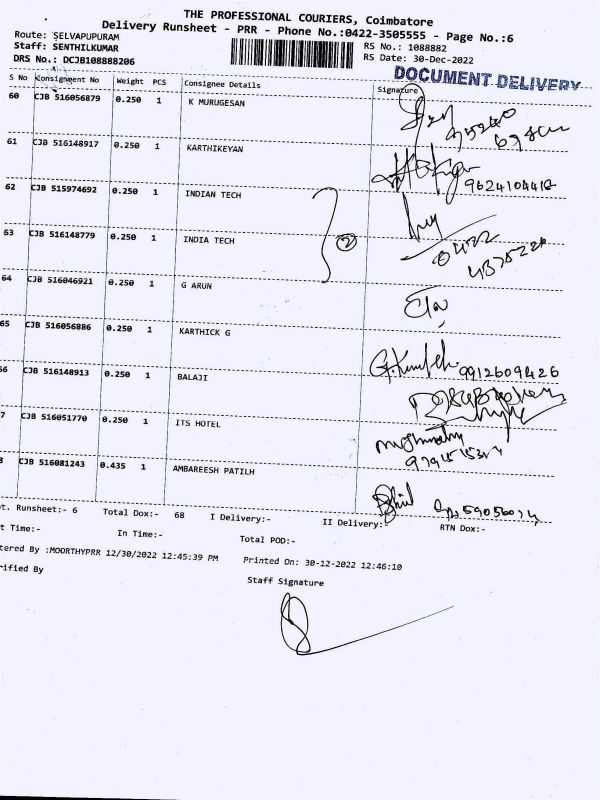 THE PROFESSIONAL COURIERS, Coimbatore
Delivery Runsheet - PRR - Phone No.:0422-3505555 - Page No.:6
Route: SELVAPUPURAM
RS No.: 1088882
Staff: SENTHILKUMAR
RS Date: 30-Dec-2022
DRS No.: DCJB108888206
DOCUMENT DELIVERY
S No Consignment No Weight PCS Consignee Details Signature
60 CJB 516056879 0.250 1 K MURUGESAN
61 CJB 516148917 0.250 1 KARTHIKEYAN
9624104412
62 CJB 515974692 0.250 1 INDIAN TECH
2
63 CJB 516148779 0.250 1 INDIA TECH
0422
64 CJB 516046921 0.250 1 G ARUN
65 CJB 516056886 0.250 1 KARTHICK G
9912609426
66 CJB 516148913 0.250 1 BALAJI
7 CJB 516051770 0.250 1 ITS HOTEL
8 CJB 516081243 0.435 1 AMBAREESH PATILH
ot. Runsheet:- 6 Total Dox:- 68 I Delivery:- II Delivery:- RTN Dox:-
t Time:- In Time:- Total POD:-
tered By :MOORTHYPRR 12/30/2022 12:45:39 PM Printed On: 30-12-2022 12:46:10
rified By Staff Signature